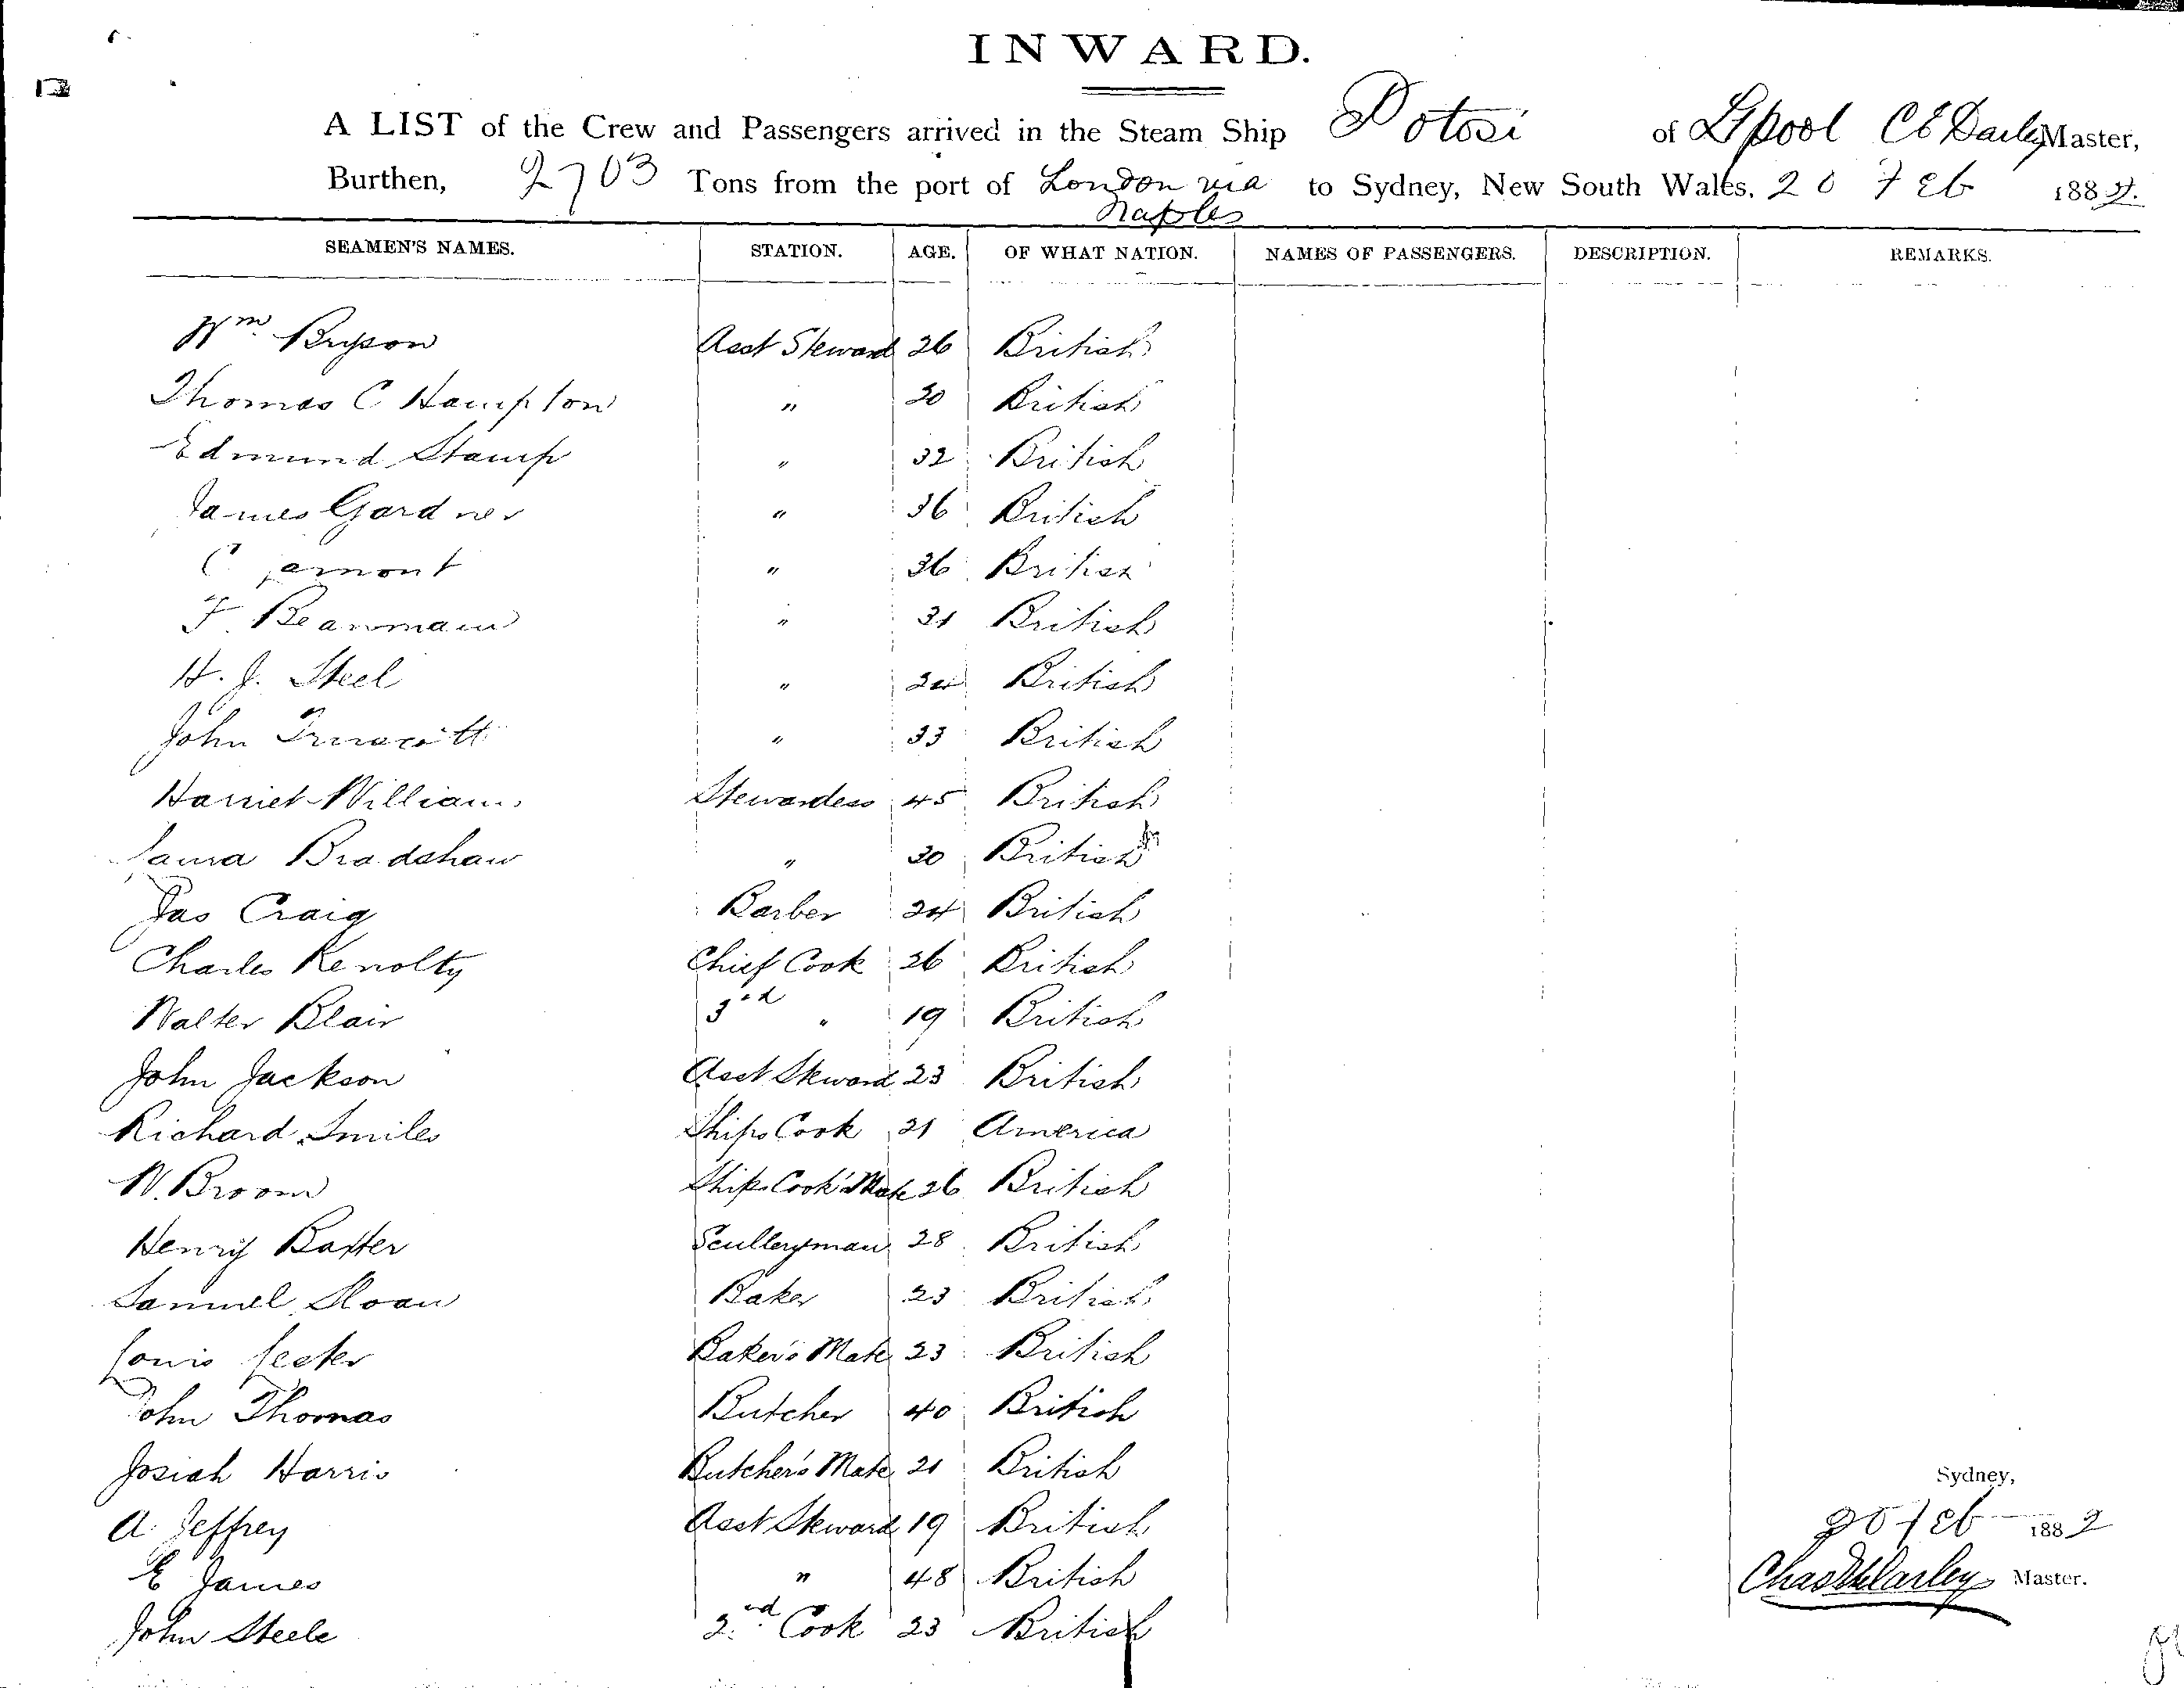 INWARD.
A LIST of the Crew and Passengers arrived in the Steam Ship Potosi of Lpool Master,
Burthen, 2703 Tons from the port of London via Naples to Sydney, New South Wales, 20 Feb 1882.
SEAMEN'S NAMES. STATION. AGE. OF WHAT NATION. NAMES OF PASSENGERS. DESCRIPTION. REMARKS.
Wm Bryson Asst Steward 26 British
Thomas C Hampton " 30 British
Edmund Stamp " 32 British
James Gardner " 36 British
C " 36 British
F Beanman " 31 British
H. J. Steel " British
John " 33 British
Harriet Williams Stewardess 45 British
Laura Bradshaw " 30 British
Jas Craig Barber 24 British
Charles Kenolty Chief Cook 26 British
Walter Blair 3rd " 19 British
John Jackson Asst Steward 23 British
Richard Smiles Ships Cook 21 America
W. Broom Ships Cook's Mate 26 British
Henry Baxter Sculleryman 28 British
Samuel Sloan Baker 23 British
Louis Lecter Baker's Mate 23 British
John Thomas Butcher 40 British
Josiah Harris Butcher's Mate 21 British
A. Jeffrey Asst Steward 19 British
E James " 48 British
John Steele 2nd Cook 23 British
Sydney,
20 Feb 1882
Master.